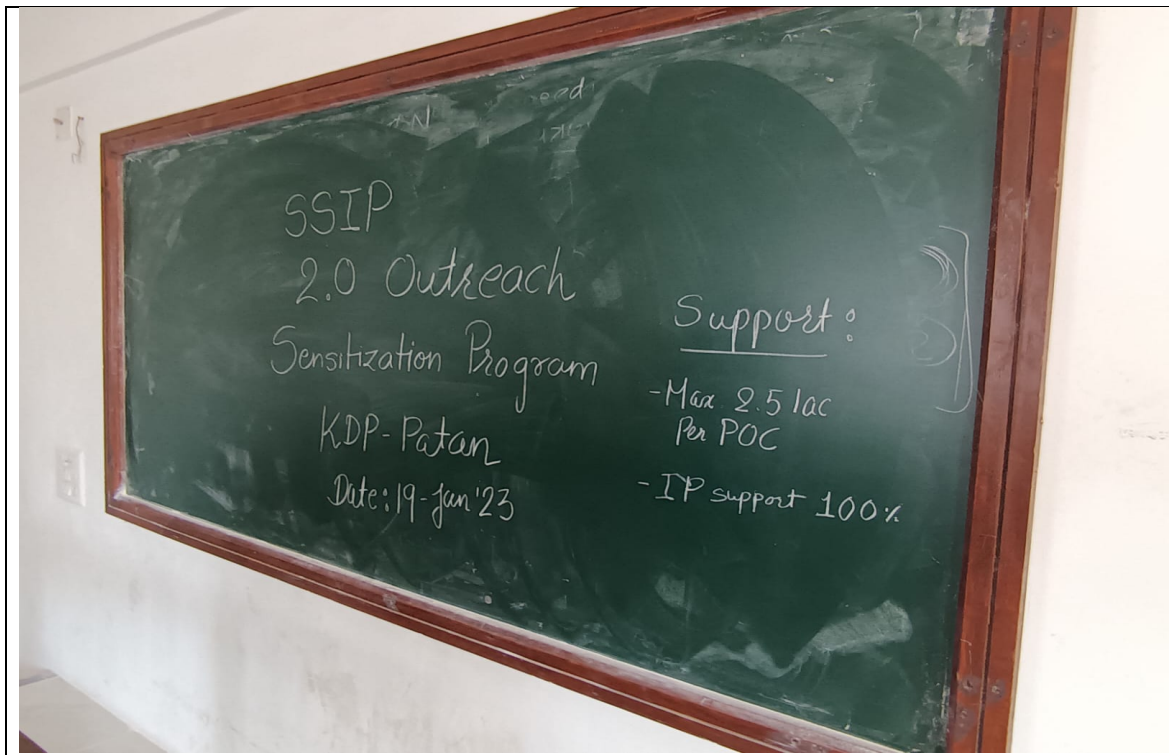 SSIP
2.0 Outreach
Sensitization Program
KDP-Patan
Date: 19-Jan'23
Support:
- Max 2.5 lac
Per POC
- IP support 100%